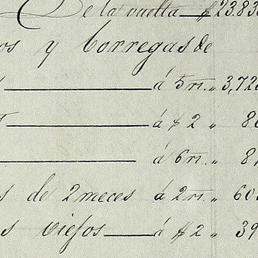 De la vuelta $ 23.83
os y Corregas de
á 5 rs. „ 3,72
á $ 2 „ 8
á 6 rs. „ 8
s de 2 meces á 2 rs. „ 60
s viejos á $ 2 „ 39